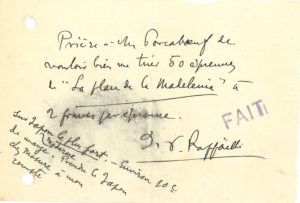 Prière à Mr Porcabœuf de
vouloir bien me tirer 50 épreuves
de "La place de la Madeleine" à
2 francs par épreuve.
J. F. Raffaëlli
FAIT
Sur Japon le plus fort – Environ 10 c
de marge. Prendre le Japon
chez
à mon
compte